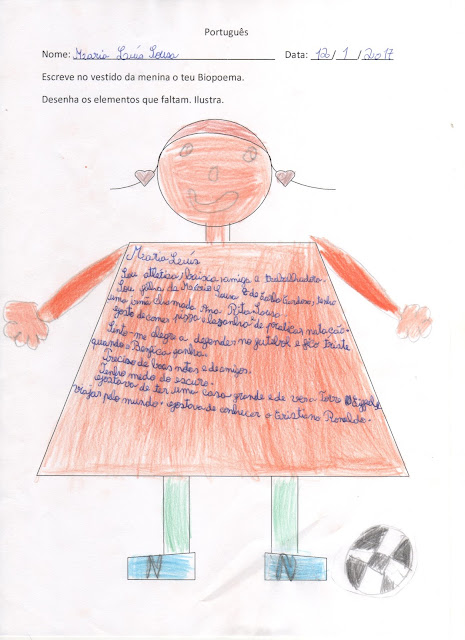 Português
Nome: Maria Luís Sousa Data: 12/1/2017
Escreve no vestido da menina o teu Biopoema.
Desenha os elementos que faltam. Ilustra.
Maria Luís
Sou atlética, baixa, amiga e trabalhadora.
Sou filha da Sousa e do Cardoso, tenho
uma irmã chamada Ana Rita Sousa.
Gosto de comer pizza e lasanha e de praticar natação.
Sinto-me alegre a defender no futebol e fico triste
quando o Benfica ganha.
Preciso de boas notas e de amigos.
Tenho medo do escuro.
Gostava de ter uma casa grande e de ver a Torre Eiffel,
viajar pelo mundo. Gostava de conhecer o Cristiano Ronaldo.
N N